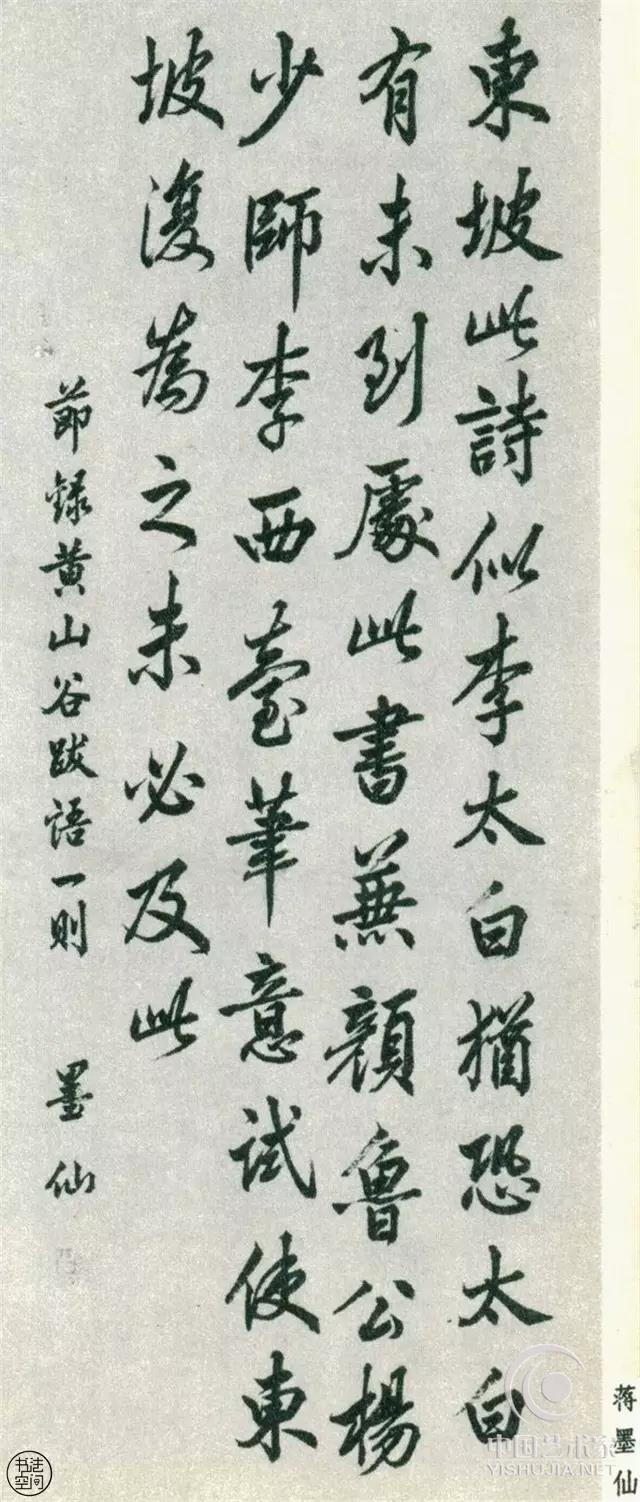 東坡此詩似李太白猶恐太白
有未到處此書兼顏魯公楊
少師李西臺筆意試使東
坡復為之未必及此
節錄黃山谷跋語一則 墨仙
蒋墨仙
中国艺术家
YISHUJIA.NET
书法空间